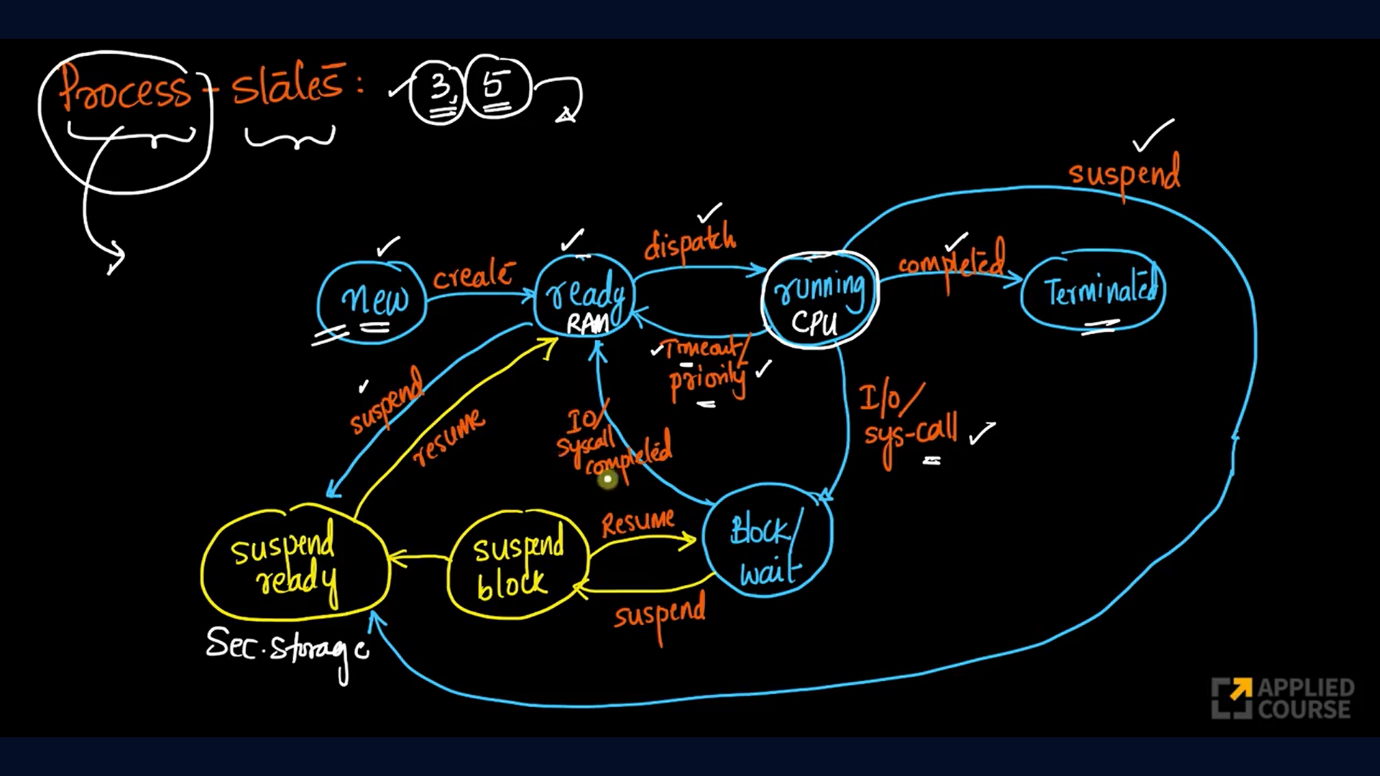 Process - states: 3, 5
suspend
dispatch
completed
create
new
ready
RAM
running
CPU
Terminated
Timeout/
priority
suspend
resume
IO/
syscall
completed
I/O/
sys-call
suspend
ready
suspend
block
Resume
suspend
Block/
wait
Sec. storage
APPLIED
COURSE